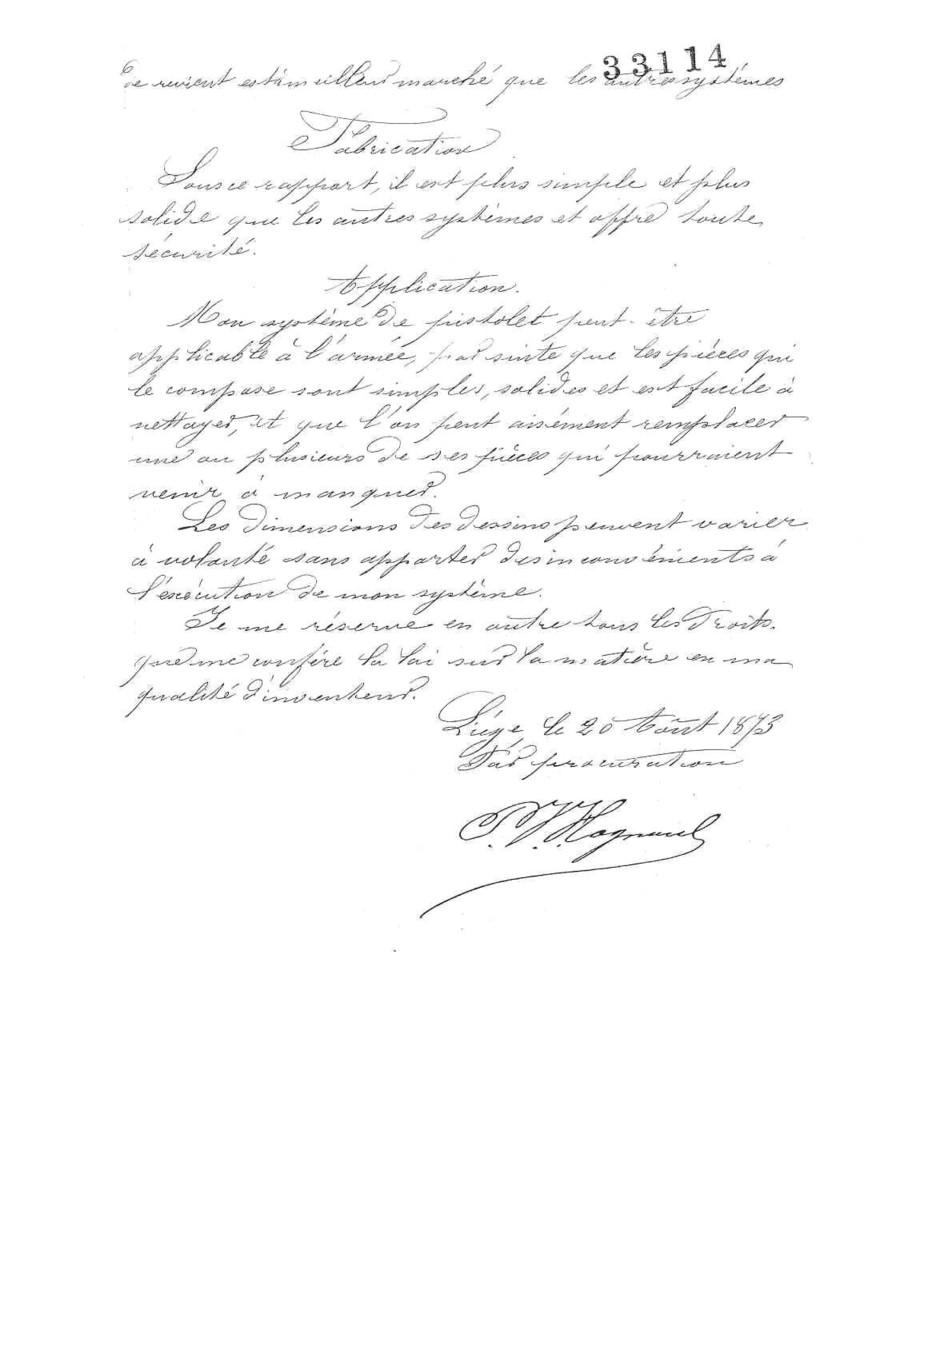 33114
de revient est à meilleur marché que les autres systèmes
Fabrication
Sous ce rapport, il est plus simple et plus
solide que les autres systèmes et offre toute
sécurité.
Application.
Mon système de pistolet peut être
applicable à l'armée, par suite que les pièces qui
le compose sont simples, solides et est facile à
nettoyer, et que l'on peut aisément remplacer
une ou plusieurs de ses pièces qui pourraient
venir à manquer.
Les dimensions des dessins peuvent varier
à volonté sans apporter des inconvénients à
l'exécution de mon système.
Je me réserve en outre tous les droits.
que me confère la loi sur la matière en ma
qualité d'inventeur.
Liége, le 20 Août 1873
Par procuration